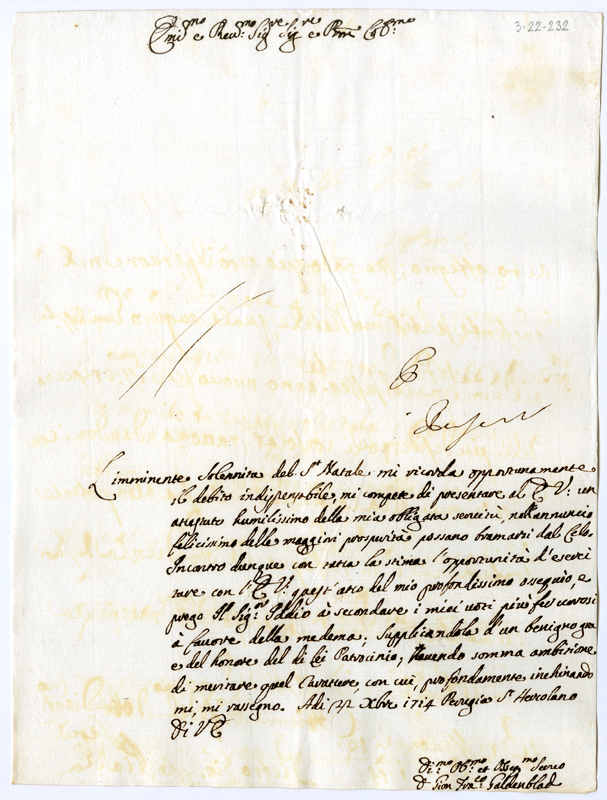 3-22-232
Em.mo e Rev.mo Sig.re Sig.re e Pron Col.mo
L'imminente Solennità del S.to Natale mi ricorda opportunamente
il debito indispensabile, mi compete di presentare al E V: un
attestato humilissimo della mia obligata servitù, nell'annuncio
felicissimo delle maggiori prosperità possano bramarsi dal Cielo.
Incontro dunque con tutta la stima l'opportunità d'eserci
tare con l'E V: quest'atto del mio profondissimo ossequio, e
prego Il Sig.re Iddio à secondare i miei voti più fervorosi
à favore della medema; Supplicandola d'un benigno gra
e del honore del di lei Patrocinio; Havendo somma ambitione
di meritare quel Carattere, con cui, profondamente inchinando
mi, mi rassegno. Adi 22 Xbre 1714 Perugia S.t Hercolano
Di V E
Di.mo Ob.mo et Osseq.mo Servo
D Gion Fra.co Galdenblad